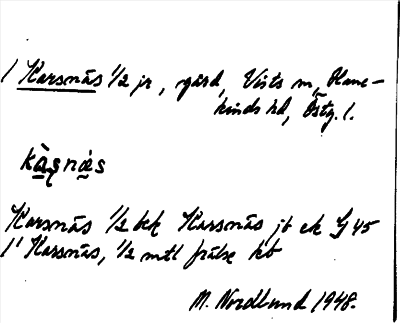 1 Karsnäs 1/2 jr, gård, Vists sn, Hane-
kinds hd, Östg. l.
kàşnás
Karsnäs 1/2 bek Karsnäs jb ek G 45
1' Karsnäs, 1/2 mtl frälse kb
M. Nordlund 1948.